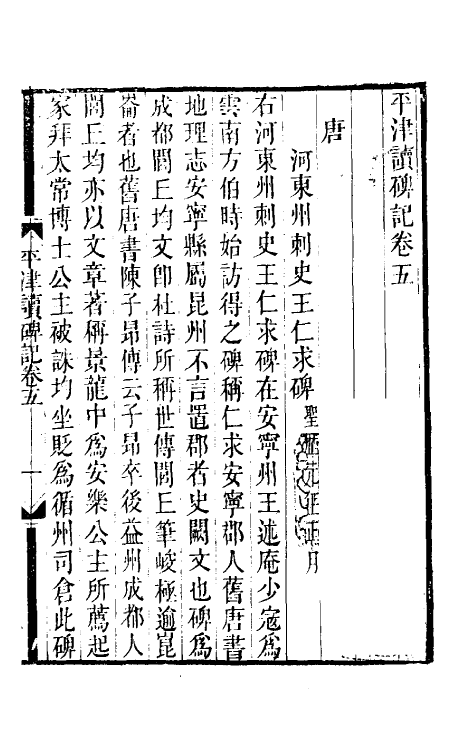 平津讀碑記卷五
唐
河東州刺史王仁求碑 聖曆元年正月
右河東州刺史王仁求碑在安寧州王述庵少寇爲
雲南方伯時始訪得之碑稱仁求安寧郡人舊唐書
地理志安寧縣屬昆州不言置郡者史闕文也碑爲
成都閭丘均文卽杜詩所稱世傳閭丘筆峻極逾崑
崙者也舊唐書陳子昂傳云子昂卒後益州成都人
閭丘均亦以文章著稱景龍中爲安樂公主所薦起
家拜太常博士公主被誅均坐貶爲循州司倉此碑
平津讀碑記卷五
一